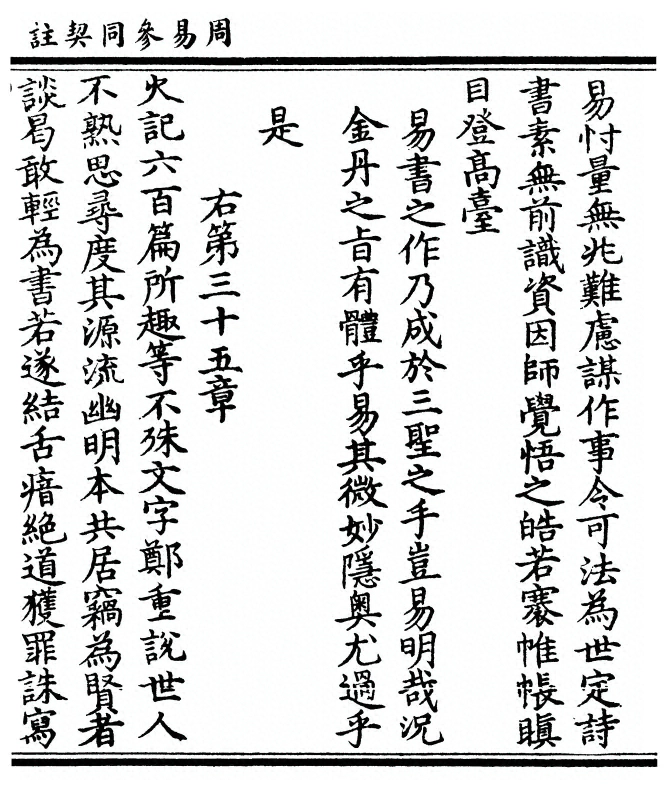 周易參同契註
易忖量無兆難慮謀作事令可法為世定詩
書素無前識資因師覺悟之皓若褰帷帳瞋
目登高臺
易書之作乃成於三聖之手豈易明哉況
金丹之旨有體乎易其微妙隱奥尤過乎
是
右第三十五章
火記六百篇所趣等不殊文字鄭重說世人
不熟思尋度其源流幽明本共居竊為賢者
談曷敢輕為書若遂結舌瘖絶道獲罪誅寫